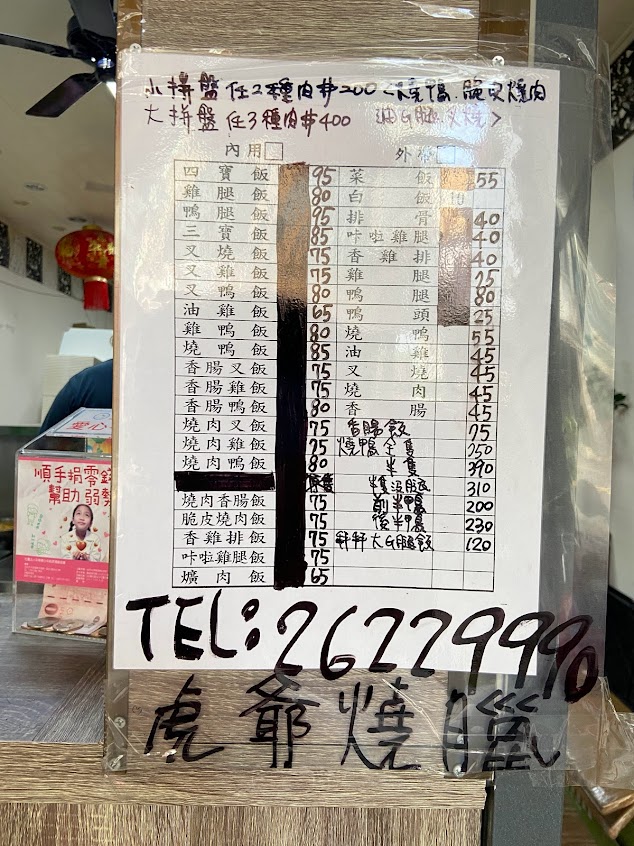 小拼盤 任2種肉#200 <燒鴨.脆皮燒肉
大拼盤 任3種肉#400 油G腿.叉燒>
內用□ 外帶□
四寶飯 95 菜飯 55
雞腿飯 80 白飯 10
鴨腿飯 95 排骨 40
三寶飯 85 咔啦雞腿 40
叉燒飯 75 香雞排 40
叉雞飯 75 雞腿 75
叉鴨飯 80 鴨腿 80
油雞飯 65 鴨頭 25
雞鴨飯 80 燒鴨 55
燒鴨飯 85 油雞 45
香腸叉飯 75 叉燒 45
香腸雞飯 75 燒肉 45
香腸鴨飯 80 香腸 45
燒肉叉飯 75 香腸飯 75
燒肉雞飯 75 燒鴨全隻 750
燒肉鴨飯 80 半隻 390
310
燒肉香腸飯 75 前半鴨 200
脆皮燒肉飯 75 後半鴨 230
香雞排飯 75 大G腿飯 120
咔啦雞腿飯 75
爌肉飯 65
TEL:26229990
虎爺燒臘
順手捐零錢
幫助弱勢